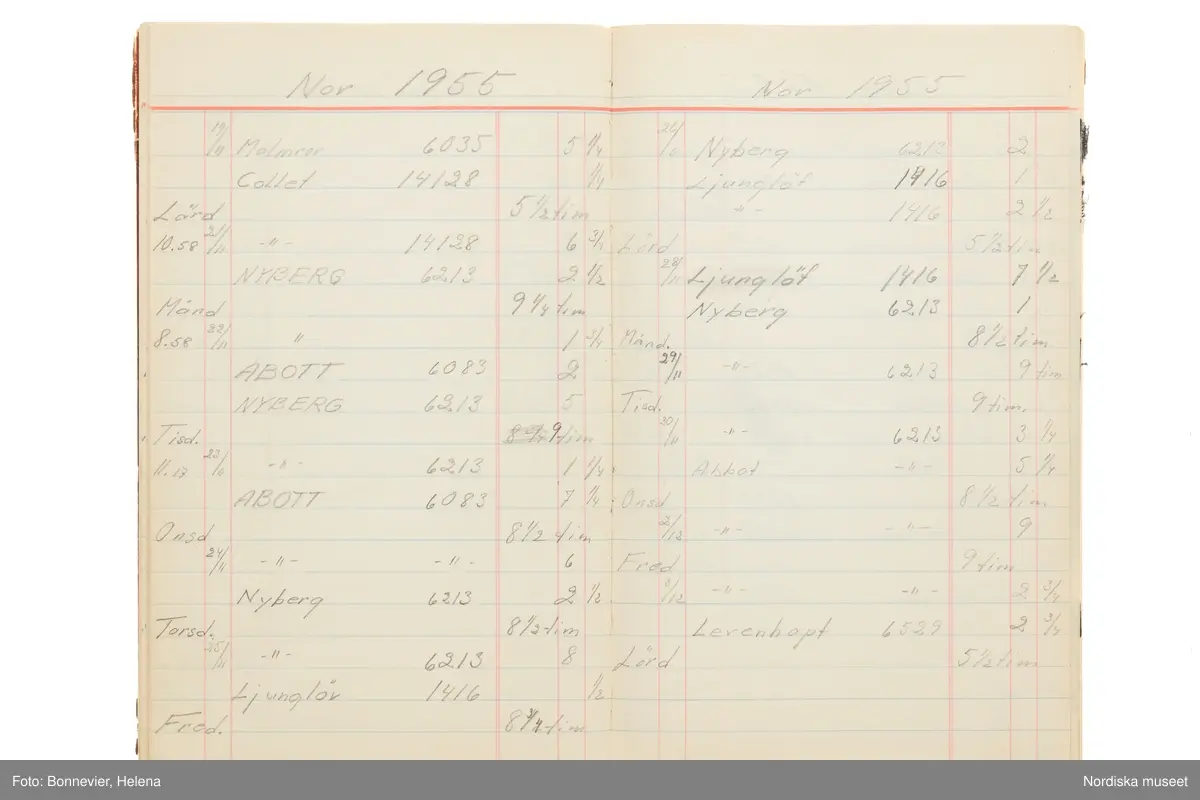 Nov 1955
19/11 Malmros 6035 5 1/4
Collet 14128 1/4
Lörd 5 1/2 tim
10.58 21/11 -"- 14128 6 3/4
NYBERG 6213 2 1/2
Månd 9 1/4 tim
8.58 22/11 " 1
ABOTT 6083 2
NYBERG 6213 5
Tisd. 9 tim
11.17 23/11 -"- 6213 1 1/4
ABOTT 6083 7 1/4
Onsd 8 1/2 tim
24/11 -"- -"- 6
Nyberg 6213 2 1/2
Torsd. 8 1/2 tim
25/11 -"- 6213 8
Ljunglöv 1416 1/2
Fred. 8 3/4 tim
Nov 1955
26/11 Nyberg 6213 2
Ljunglöf 1416 1
-"- 1416 2 1/2
Lörd 5 1/2 tim
28/11 Ljunglöf 1416 7 1/2
Nyberg 6213 1
Månd. 8 1/2 tim
29/11 -"- 6213 9 tim
Tisd. 9 tim.
30/11 -"- 6213 3 1/4
Abbot -"- 5 1/4
Onsd 8 1/2 tim
2/12 -"- -"- 9
Fred 9 tim
-"- -"- 2 3/4
Levenhapt 6529 2 3/4
Lörd 5 1/2 tim
Foto: Bonnevier, Helena
Nordiska museet